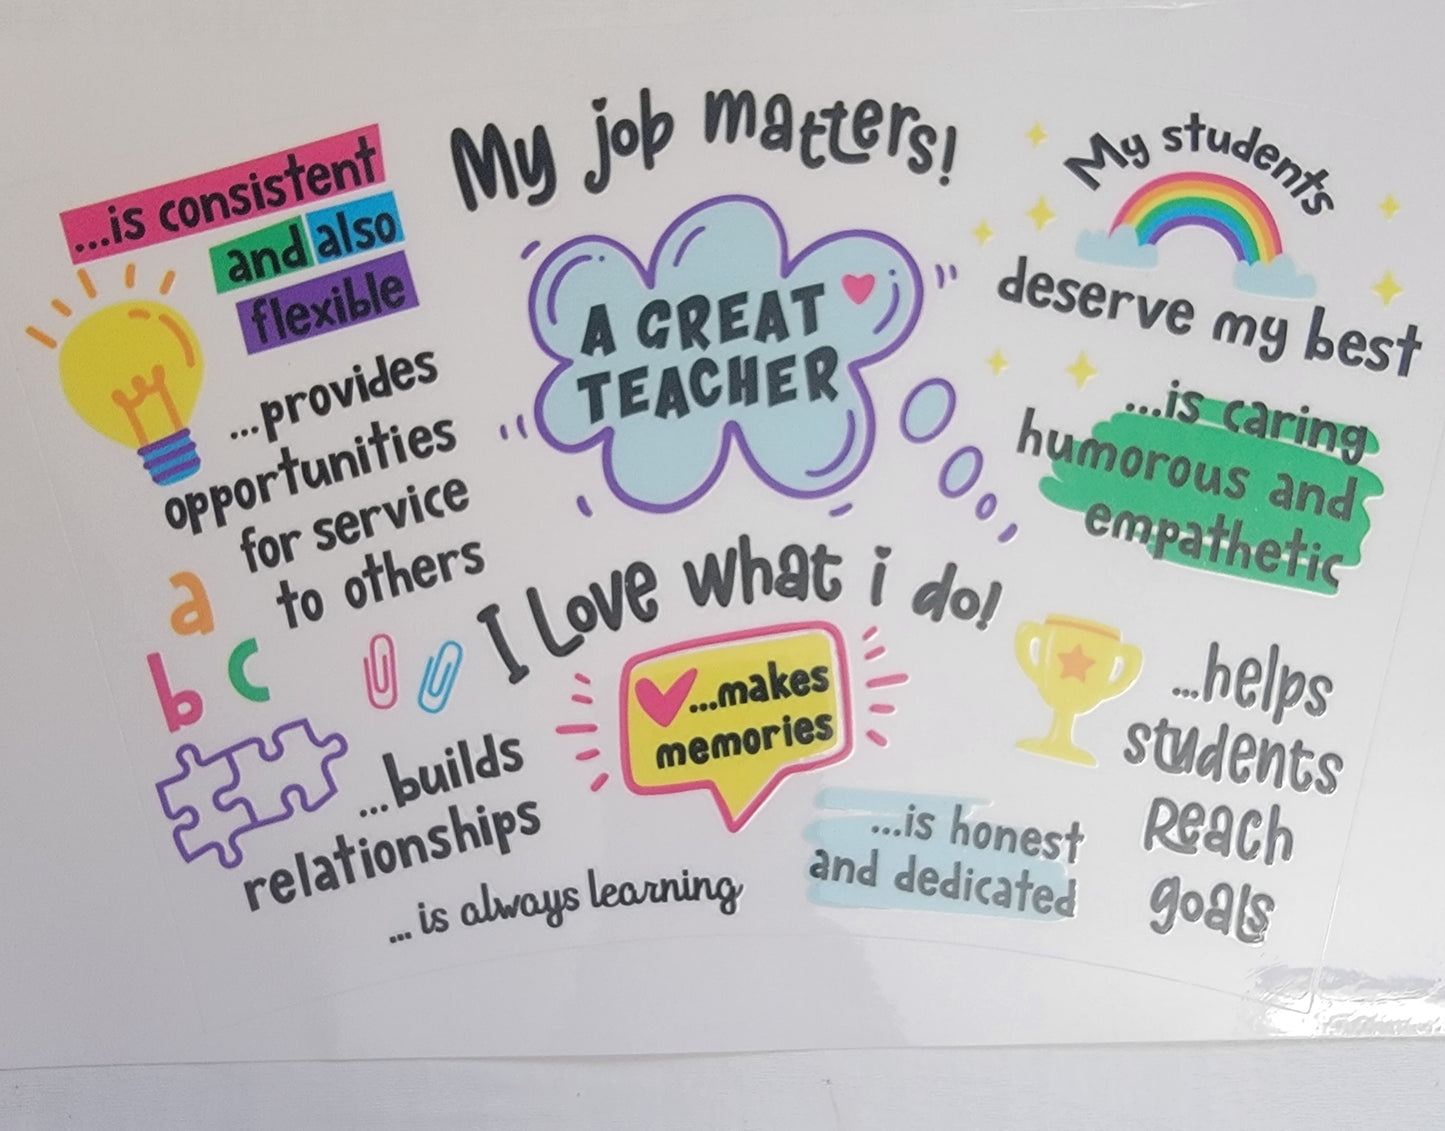 My job matters!
...is consistent
and also
flexible
A GREAT
TEACHER
My students
deserve my best
...provides
opportunities
for service
to others
...is caring
humorous and
empathetic
I Love what i do!
a
b c
...makes
memories
...helps
students
Reach
goals
...builds
relationships
...is honest
and dedicated
... is always learning